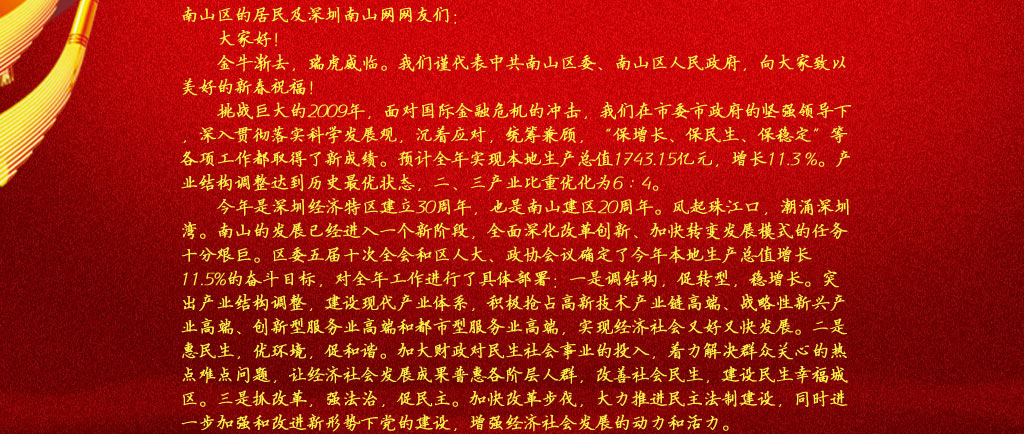 南山区的居民及深圳南山网网友们：
大家好！
金牛渐去，瑞虎威临。我们谨代表中共南山区委、南山区人民政府，向大家致以
美好的新春祝福！
挑战巨大的2009年，面对国际金融危机的冲击，我们在市委市政府的坚强领导下
，深入贯彻落实科学发展观，沉着应对，统筹兼顾，“保增长、保民生、保稳定”等
各项工作都取得了新成绩。预计全年实现本地生产总值1743.15亿元，增长11.3％。产
业结构调整达到历史最优状态，二、三产业比重优化为6：4。
今年是深圳经济特区建立30周年，也是南山建区20周年。风起珠江口，潮涌深圳
湾。南山的发展已经进入一个新阶段，全面深化改革创新、加快转变发展模式的任务
十分艰巨。区委五届十次全会和区人大、政协会议确定了今年本地生产总值增长
11.5%的奋斗目标，对全年工作进行了具体部署：一是调结构，促转型，稳增长。突
出产业结构调整，建设现代产业体系，积极抢占高新技术产业链高端、战略性新兴产
业高端、创新型服务业高端和都市型服务业高端，实现经济社会又好又快发展。二是
惠民生，优环境，促和谐。加大财政对民生社会事业的投入，着力解决群众关心的热
点难点问题，让经济社会发展成果普惠各阶层人群，改善社会民生，建设民生幸福城
区。三是抓改革，强法治，促民主。加快改革步伐，大力推进民主法制建设，同时进
一步加强和改进新形势下党的建设，增强经济社会发展的动力和活力。